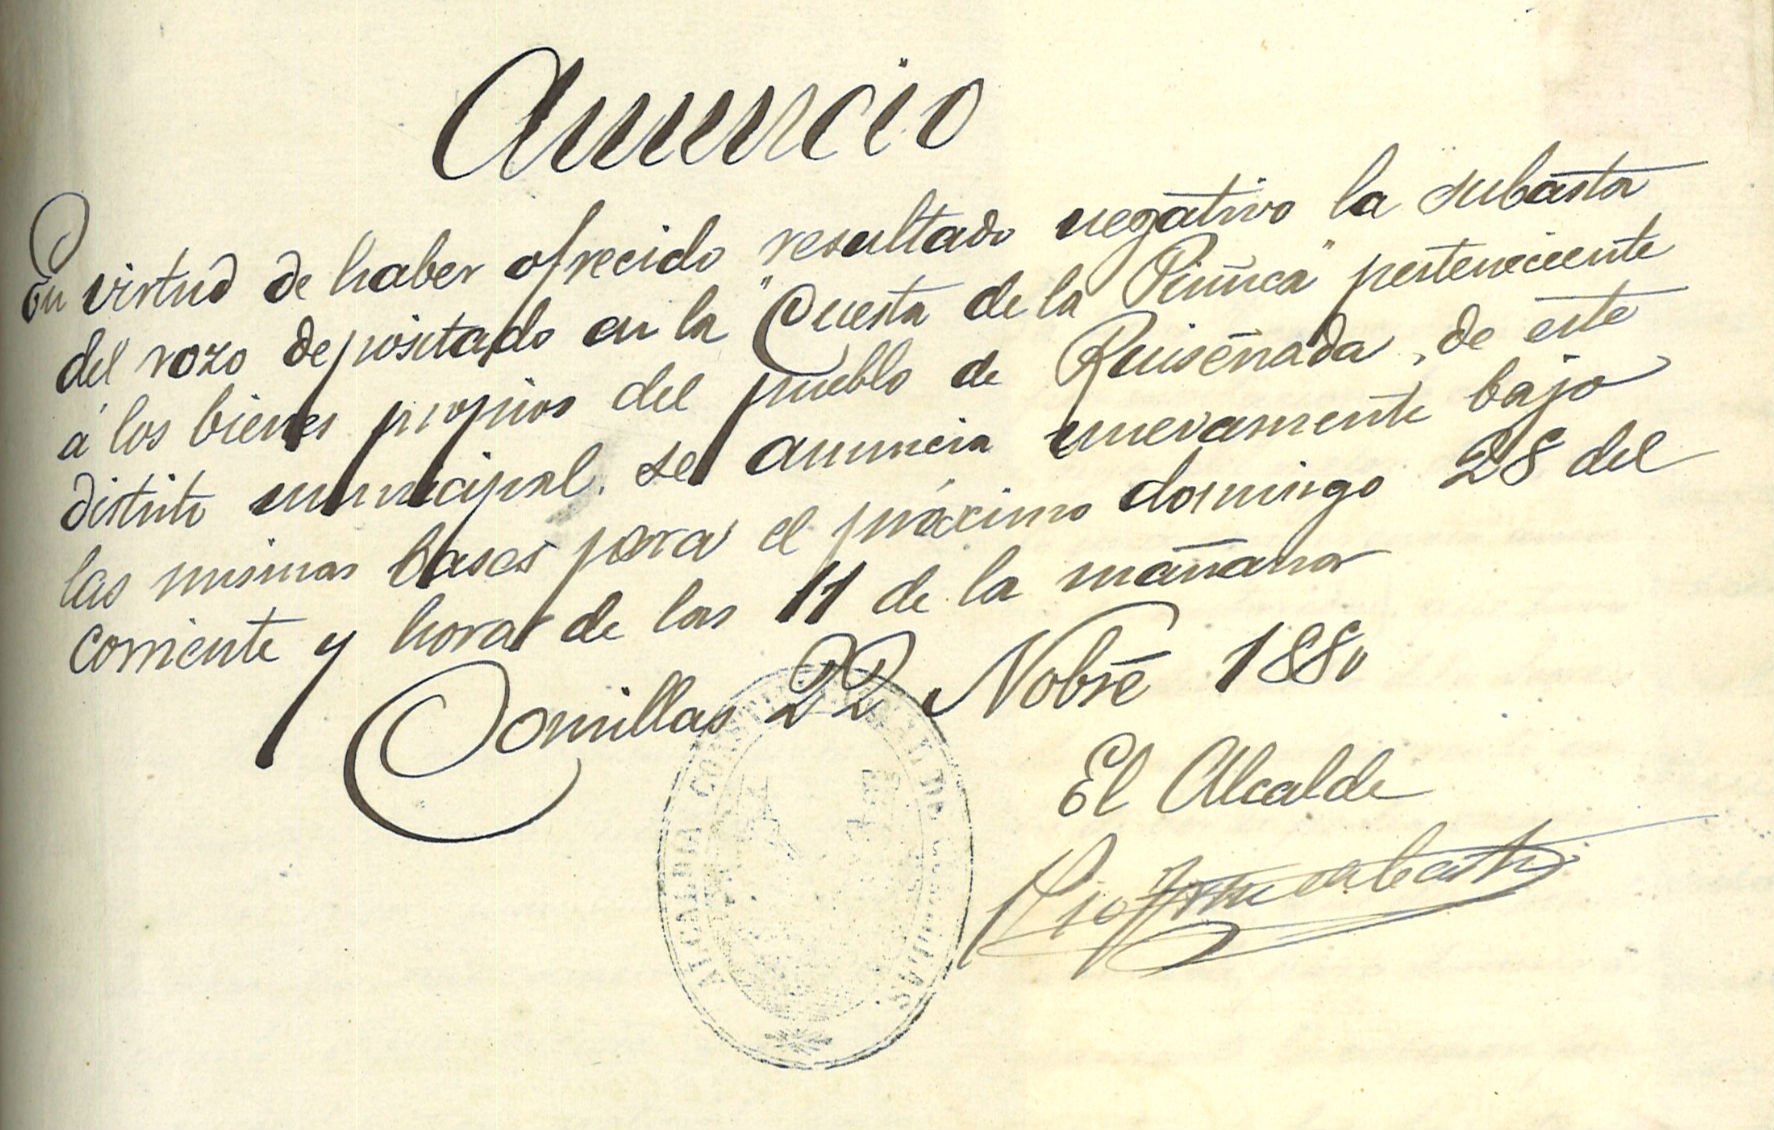 Anuncio
En virtud de haber ofrecido resultado negativo la subasta
del rozo depositado en la "Cuesta de la Piñuca" perteneciente
á los bienes propios del pueblo de Ruiseñada, de este
distrito municipal, se anuncia nuevamente bajo
las mismas bases para el próximo domingo 28 del
corriente y hora de las 11 de la mañana
Comillas 22 Nobre 1880
El Alcalde
ALCALDIA CONSTITUCIONAL DE COMILLAS